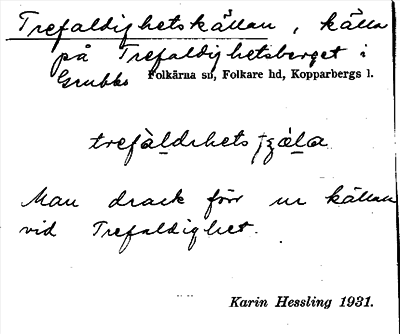 Trefaldighetskällan, källa
på Trefaldighetsberget i
Grubbs Folkärna sn, Folkare hd, Kopparbergs l.
Man drack förr ur källan
vid Trefaldighet.
Karin Hessling 1931.